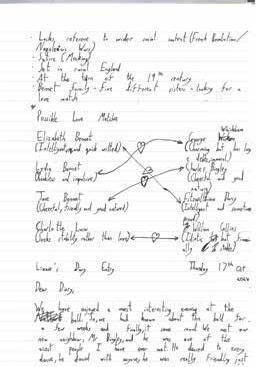 - Lacks reference to wider social context (French Revolution/
Napoleonic Wars)
- Satire (Mocking)
- Set in rural England
- At the turn of the 19th century
- Bennet family - Five different sisters - looking for a
love match
Possible Love Matches
Elizabeth Bennet
(Intelligent and quick witted)
George Wickham
(Charming but has
Lydia Bennet
(Reckless and impulsive)
Charles Bingley
(Cheerful and good
natured)
Jane Bennet
(Cheerful, friendly and good natured)
Fitzwilliam Darcy
(Intelligent and sometimes
Charlotte Lucas
(Seeks stability rather than love)
William Collins
(Idiotic but
Diary Entry
Thursday 17th
Dear Diary,
We have enjoyed a most interesting evening at the
ball. had known about this ball for
a few weeks and finally, it came round. We met our
new neighbour, Mr. Bingley, and he was one of the
nicest people I have ever met. He danced in every
dance, he danced with anyone, he was really friendly